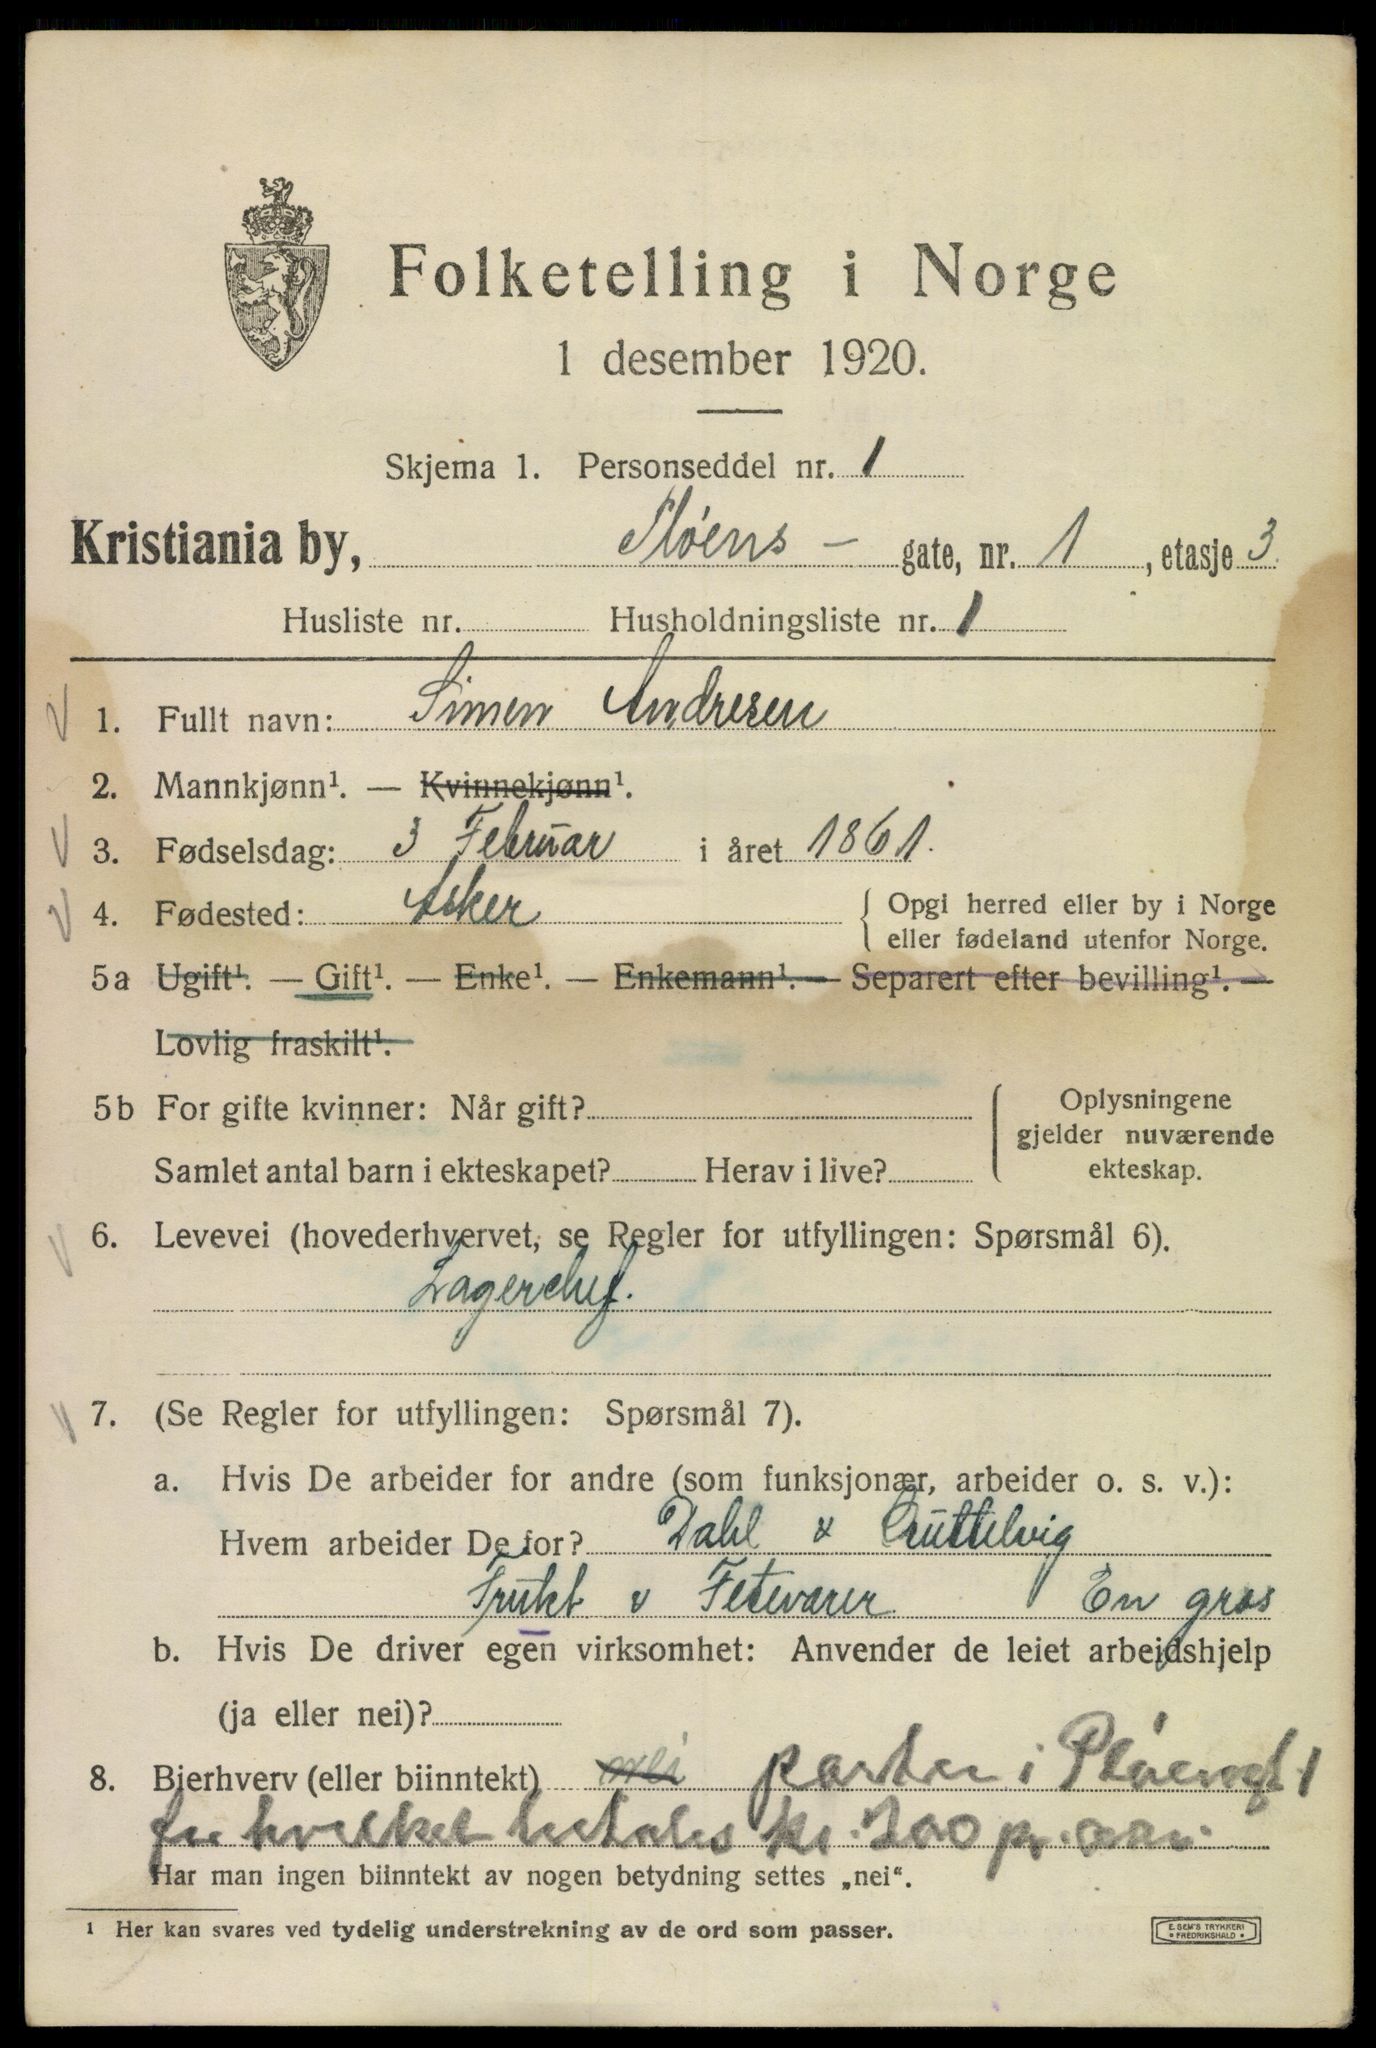 Folketelling i Norge
1 desember 1920.
Skjema 1. Personseddel nr. 1
Kristiania by, Pløens - gate, nr. 1, etasje 3
Husliste nr. Husholdningsliste nr. 1
1. Fullt navn: Simen Andresen
2. Mannkjønn¹. — Kvinnekjønn¹.
3. Fødselsdag: 3 Februar i året 1861.
4. Fødested: Asker { Opgi herred eller by i Norge
eller fødeland utenfor Norge.
5a Ugift¹. — Gift¹. — Enke¹. — Enkemann¹. — Separert efter bevilling¹. —
Lovlig fraskilt¹.
5b For gifte kvinner: Når gift?
Samlet antal barn i ekteskapet? Herav i live?
{ Oplysningene
gjelder nuværende
ekteskap.
6. Levevei (hovederhvervet, se Regler for utfyllingen: Spørsmål 6).
Lagerchef.
7. (Se Regler for utfyllingen: Spørsmål 7).
a. Hvis De arbeider for andre (som funksjonær, arbeider o. s. v.):
Hvem arbeider De for? Dahl &
Frukt & Fetevarer En gros
b. Hvis De driver egen virksomhet: Anvender de leiet arbeidshjelp
(ja eller nei)?
8. Bierhverv (eller biinntekt) nei i Pløensgt 1
for hvilket betales kr. 200 pr. aar.
Har man ingen biinntekt av nogen betydning settes „nei“.
¹ Her kan svares ved tydelig understrekning av de ord som passer.
E. SEM'S TRYKKERI
• FREDRIKSHALD •